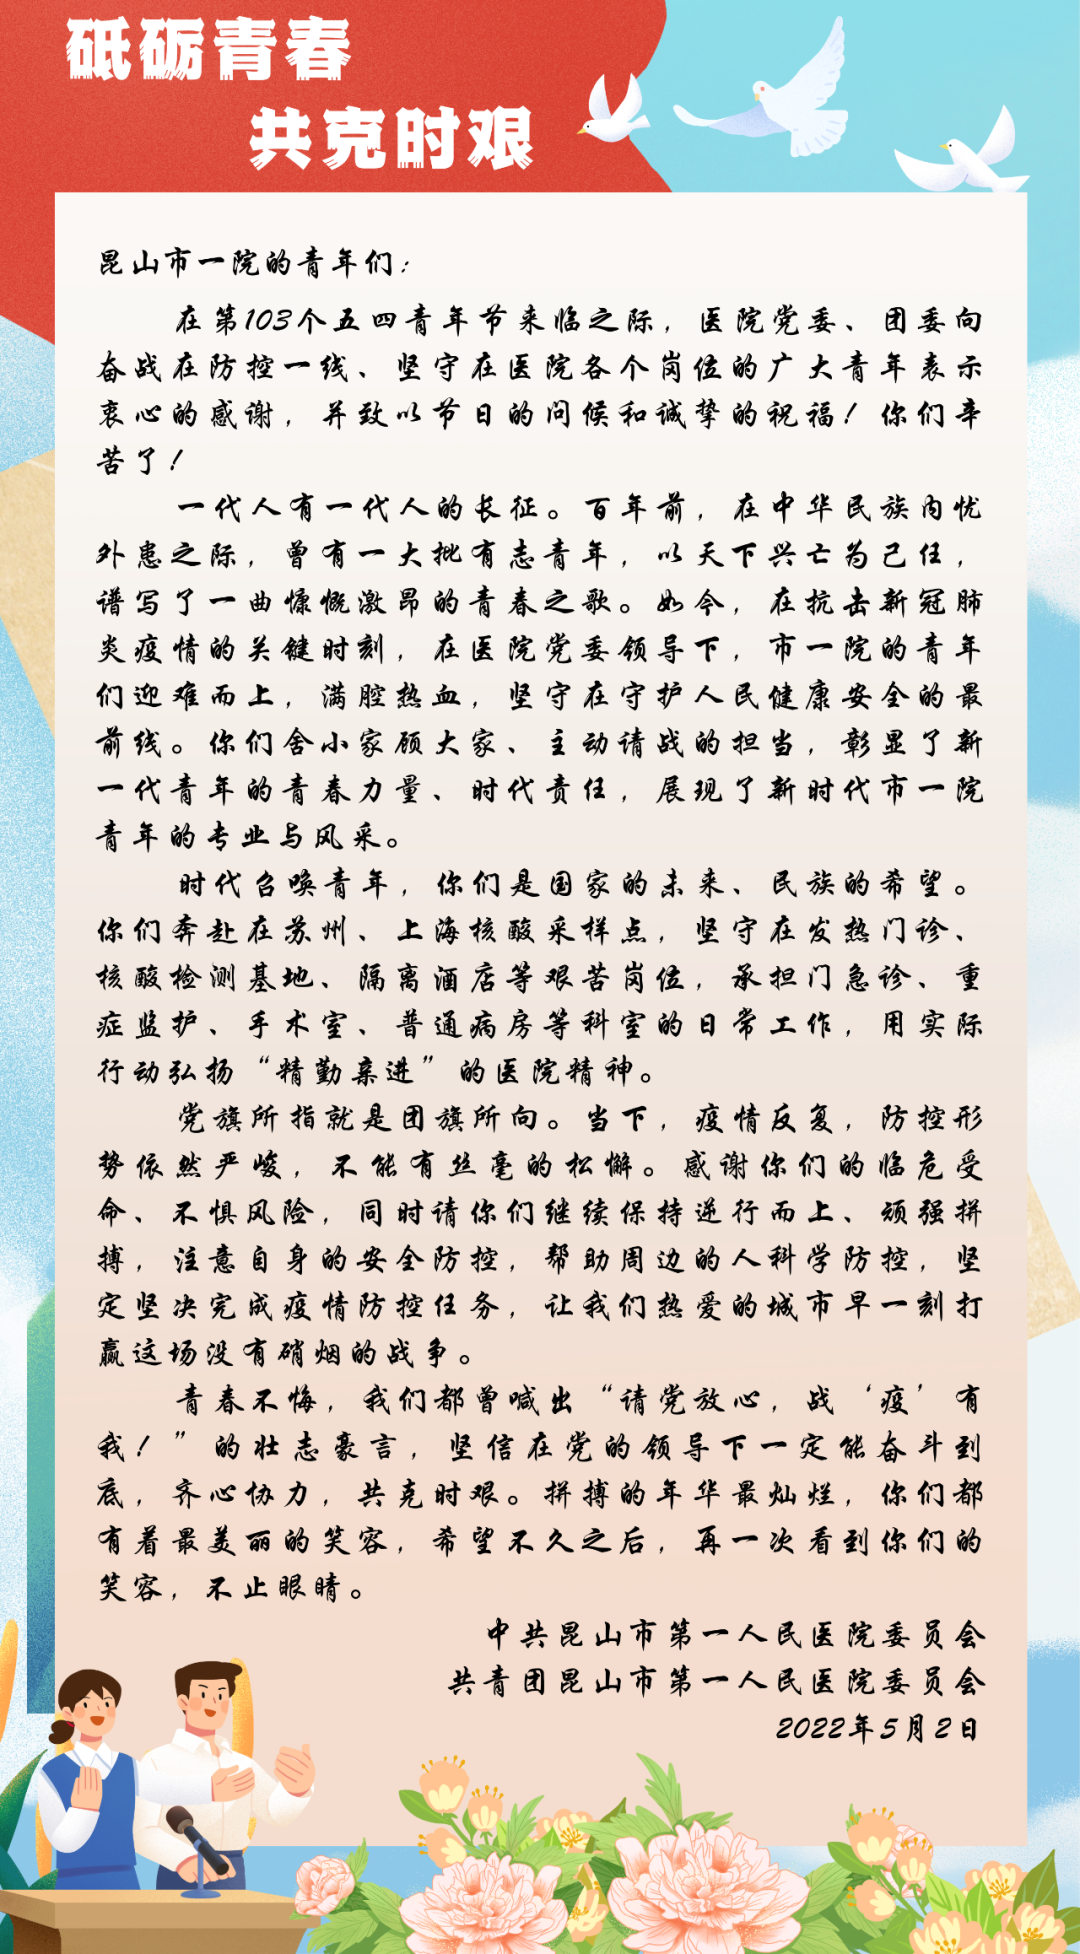 砥砺青春
共克时艰
昆山市一院的青年们：
在第103个五四青年节来临之际，医院党委、团委向
奋战在防控一线、坚守在医院各个岗位的广大青年表示
衷心的感谢，并致以节日的问候和诚挚的祝福！你们辛
苦了！
一代人有一代人的长征。百年前，在中华民族内忧
外患之际，曾有一大批有志青年，以天下兴亡为己任，
谱写了一曲慷慨激昂的青春之歌。如今，在抗击新冠肺
炎疫情的关键时刻，在医院党委领导下，市一院的青年
们迎难而上，满腔热血，坚守在守护人民健康安全的最
前线。你们舍小家顾大家、主动请战的担当，彰显了新
一代青年的青春力量、时代责任，展现了新时代市一院
青年的专业与风采。
时代召唤青年，你们是国家的未来、民族的希望。
你们奔赴在苏州、上海核酸采样点，坚守在发热门诊、
核酸检测基地、隔离酒店等艰苦岗位，承担门急诊、重
症监护、手术室、普通病房等科室的日常工作，用实际
行动弘扬“精勤亲进”的医院精神。
党旗所指就是团旗所向。当下，疫情反复，防控形
势依然严峻，不能有丝毫的松懈。感谢你们的临危受
命、不惧风险，同时请你们继续保持逆行而上、顽强拼
搏，注意自身的安全防控，帮助周边的人科学防控，坚
定坚决完成疫情防控任务，让我们热爱的城市早一刻打
赢这场没有硝烟的战争。
青春不悔，我们都曾喊出“请党放心，战‘疫’有
我！”的壮志豪言，坚信在党的领导下一定能奋斗到
底，齐心协力，共克时艰。拼搏的年华最灿烂，你们都
有着最美丽的笑容，希望不久之后，再一次看到你们的
笑容，不止眼睛。
中共昆山市第一人民医院委员会
共青团昆山市第一人民医院委员会
2022年5月2日